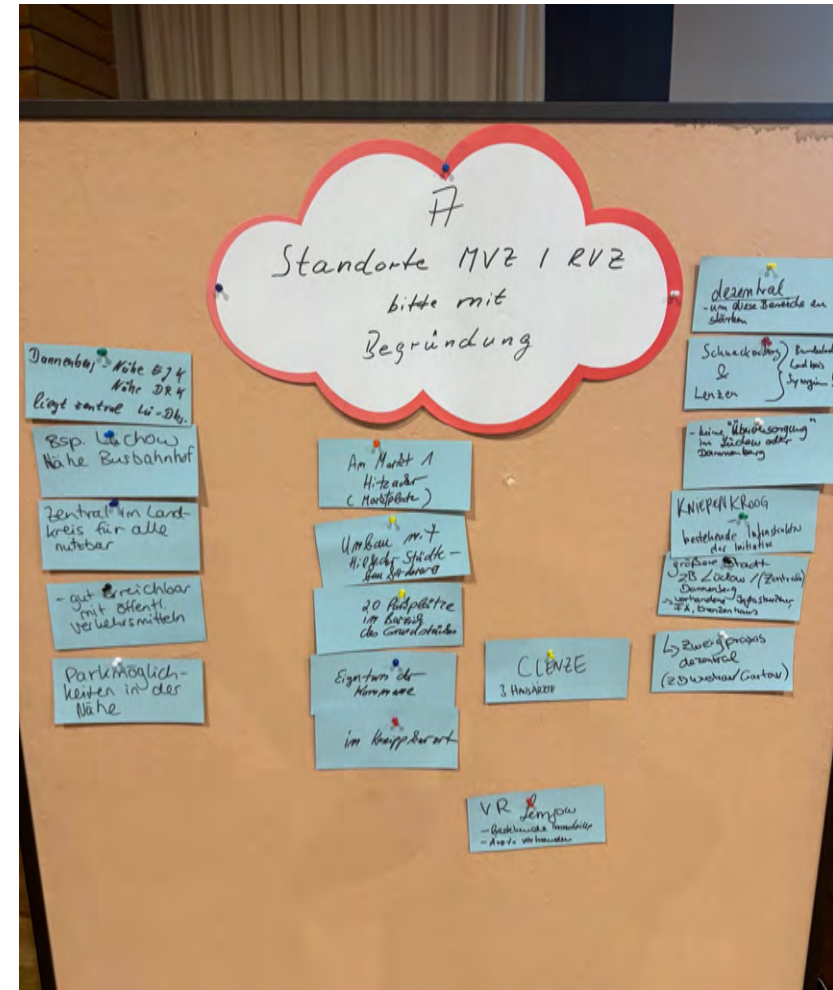 A
Standorte MVZ / RVZ
bitte mit
Begründung
Dannenberg - Nähe EJK
Nähe DRK
liegt zentral Lü-Dbg.
Bsp. Lüchow
Nähe Busbahnhof
Zentral im Land-
kreis für alle
nutzbar
- gut erreichbar
mit öffentl.
Verkehrsmitteln
Parkmöglich-
keiten in der
Nähe
Am Markt 1
Hitzacker
(Marktplatz)
Umbau mit
Hilfe der Städte-
20 Parkplätze
im Bereich
des Grundstückes
Eigentum der
Kommune
im Kneippkurort
CLENZE
3 HAUSÄRZTE
VR
- Bestehende
- Ärzte vorhanden
dezentral
- um diese Bereiche zu
stärken
Schnackenburg
&
Lenzen
Landkreis
Synergien
- keine "Überversorgung"
in Lüchow oder
Dannenberg
KNIEPENKROOG
bestehende Infrastruktur
der Initiative
größere Stadt
zB Lüchow / (Zentral)
Dannenberg
vorhandene Infrastruktur,
Krankenhaus
↳ Zweigpraxis
dezentral
(zB Wustrow/Gartow)